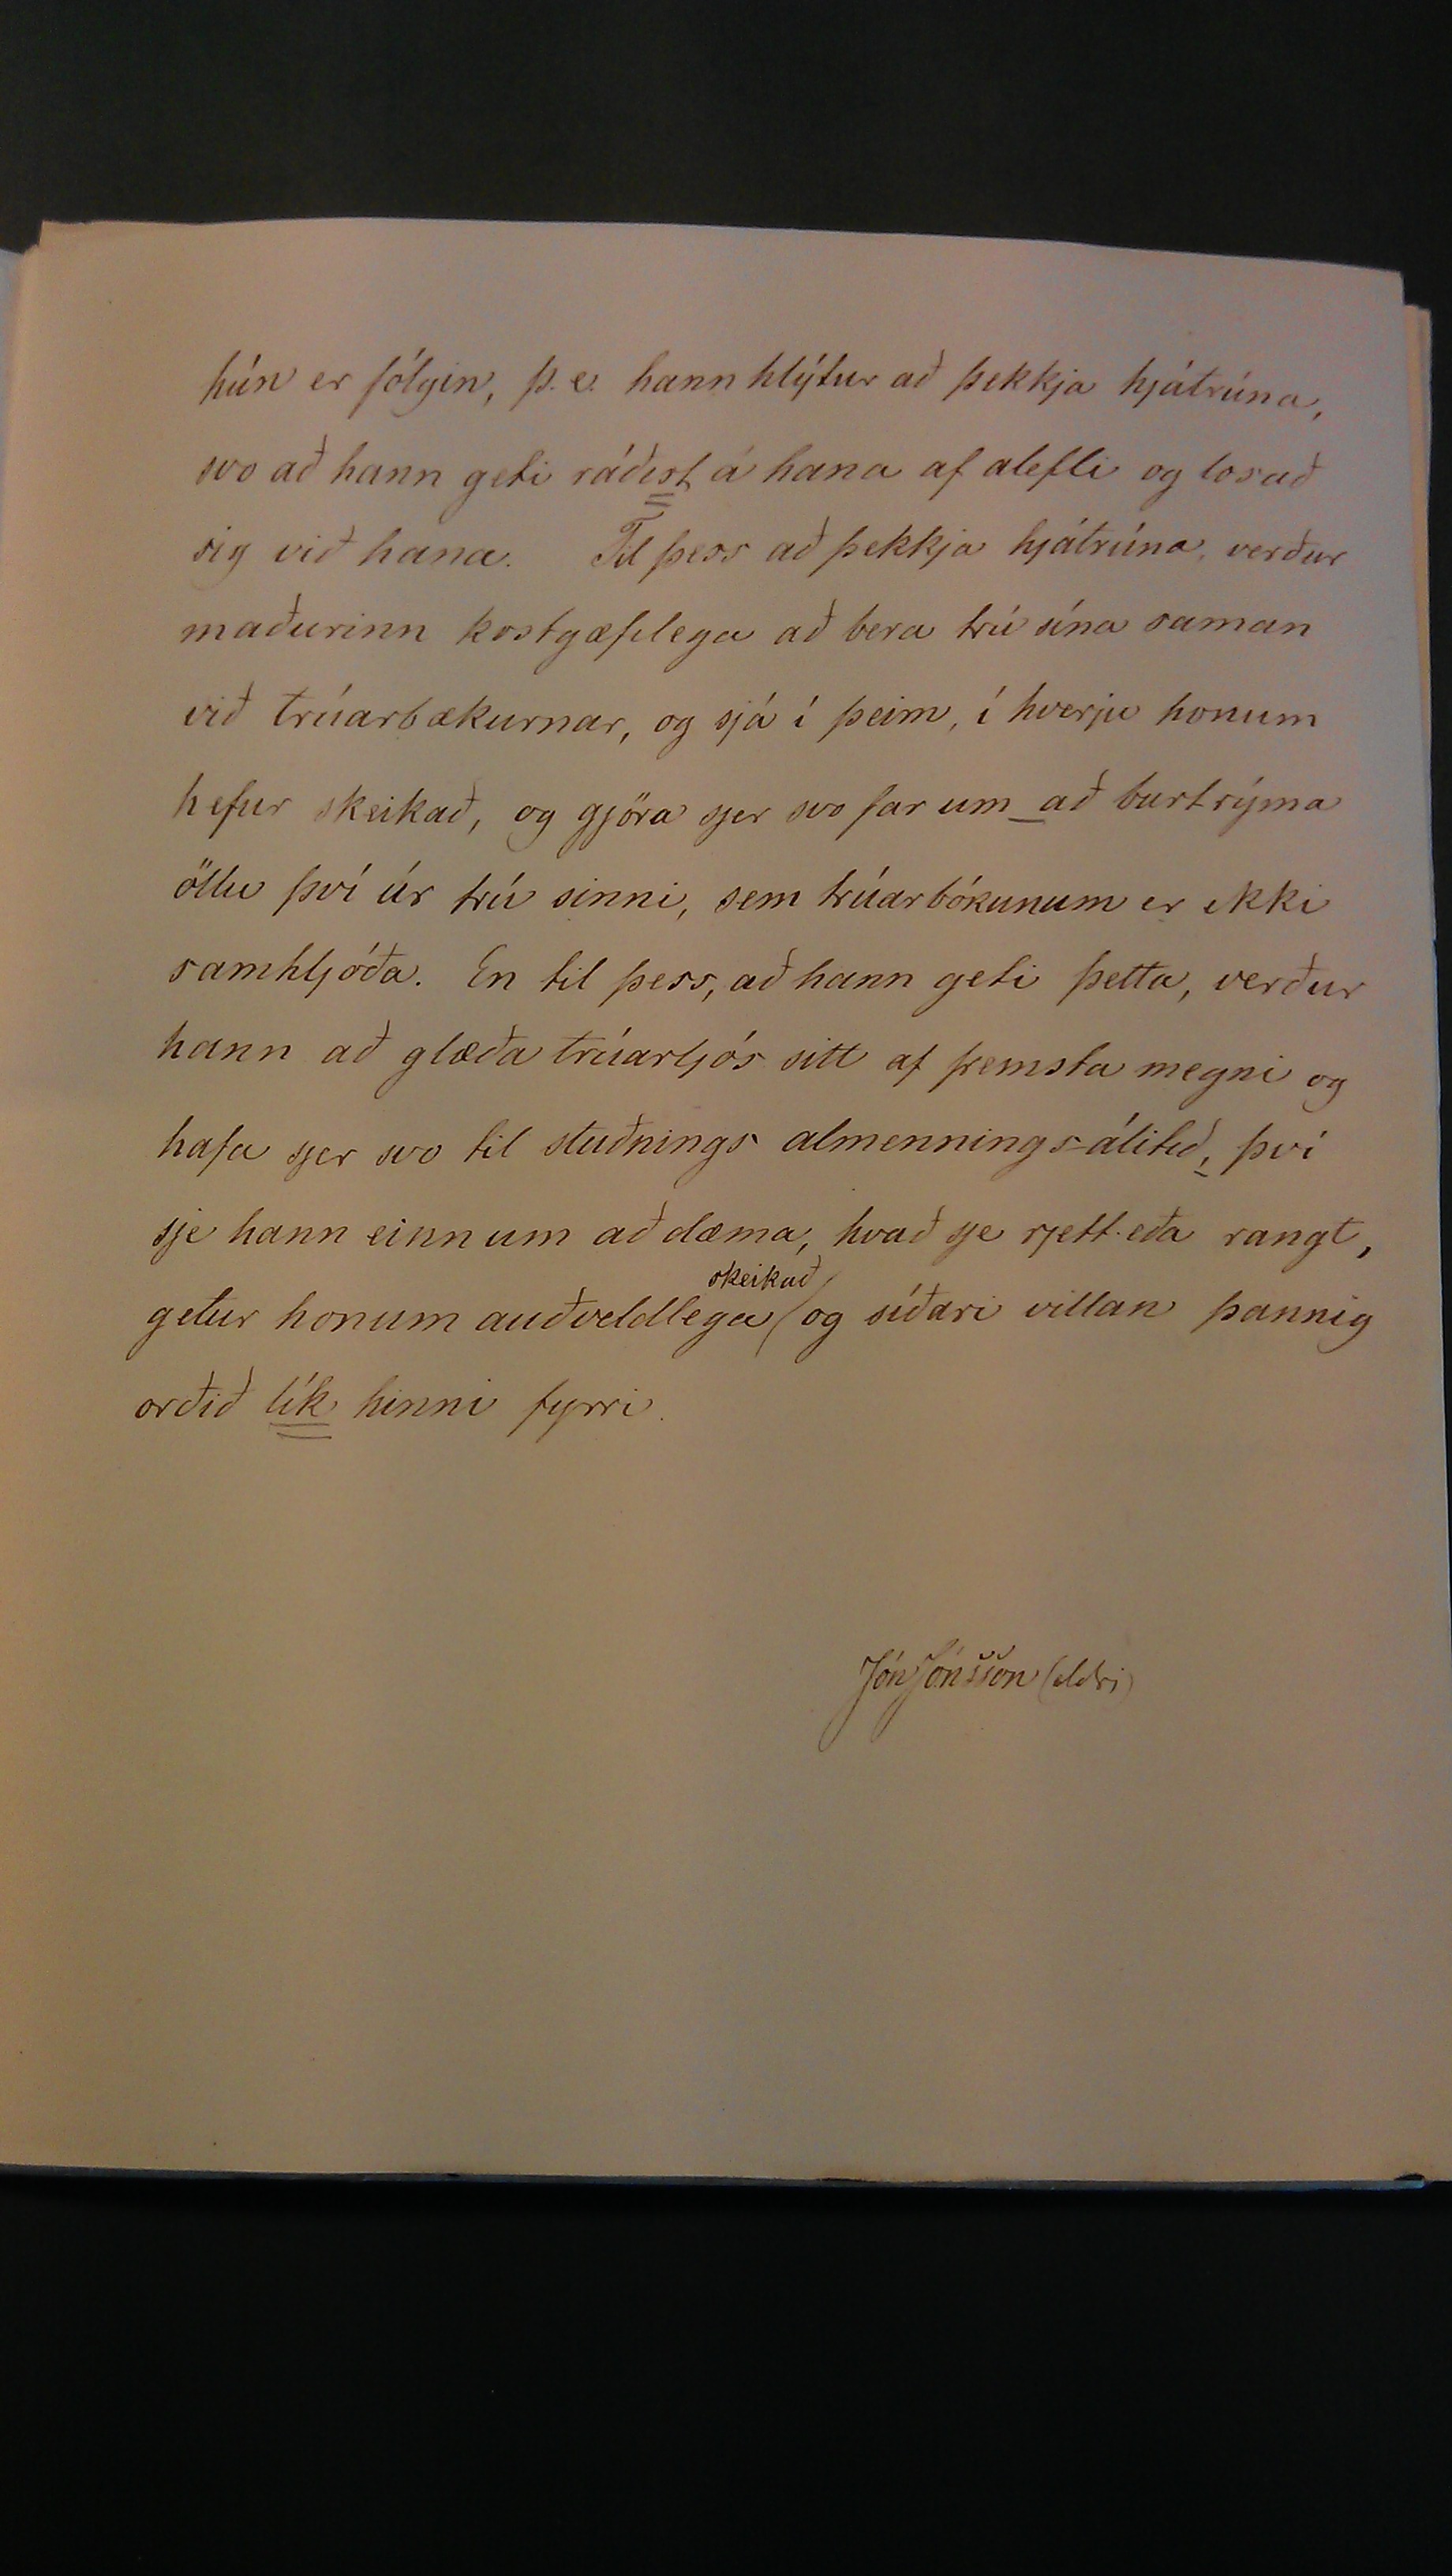 hún er fólgin, þ. e. hann hlýtur að þekkja hjátrúna,
svo að hann geti ráðist á hana af alefli og losað
sig við hana. Til þess að þekkja hjátrúna, verður
maðurinn kostgæfilega að bera trú sína saman
við trúarbækurnar, og sjá í þeim, í hverju honum
hefur skeikað, og gjöra sjer svo far um að burtrýma
öllu því úr trú sinni, sem trúarbókunum er ekki
samhljóða. En til þess, að hann geti þetta, verður
hann að glæða trúarljós sitt af fremsta megni og
hafa sjer svo til stuðnings almennings-álitið, því
sje hann einn um að dæma, hvað sje rjett eða rangt,
skeikað
getur honum auðveldlega og síðari villan þannig
orðið lík hinni fyrri.
Jón Jónsson (eldri)